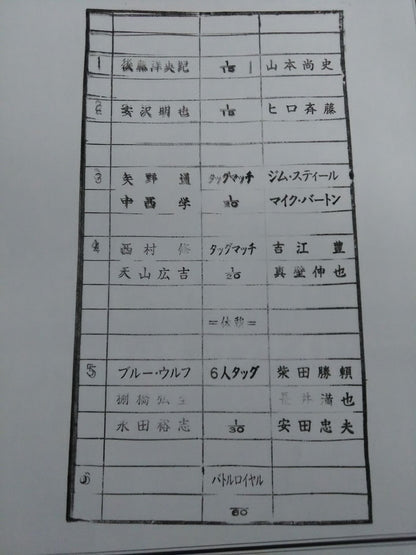 1 後藤洋央紀 1/15 山本尚史
2 安沢明也 1/15 ヒロ斉藤
3 矢野通 タッグマッチ ジム・スティール
中西学 1/20 マイク・バートン
4 西村修 タッグマッチ 吉江豊
天山広吉 1/20 真壁伸也
=休憩=
5 ブルー・ウルフ 6人タッグ 柴田勝頼
棚橋弘至 長井満也
永田裕志 1/30 安田忠夫
バトルロイヤル
60